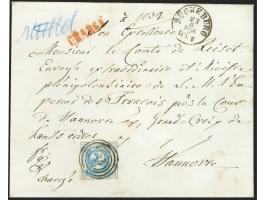 CHARGÉ
à 1039
BÜCKEBURG
Son Excellence
Monsieur le Comte de Reiset
Envoyé extraordinaire et Ministre
plénipotentiaire de S. M. l'Em
pereur des Français près la Cour
de Hannovre, Grand-Croix de
hauts ordres
Hannovre.
Chargé